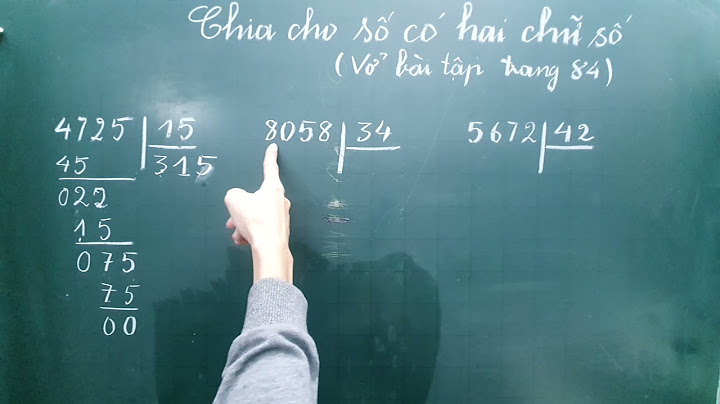 Chia cho số có hai chữ số
(Vở bài tập trang 84)
4725 15
45 315
022
15
075
75
00
8058 34
5672 42